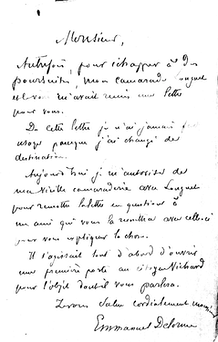 Monsieur,
Autrefois, pour échapper à des
poursuites, mon camarade Longuet
et vous m'avait remis une lettre
pour vous.
De cette lettre je n'ai jamais fait
usage puisque j'ai changé de
destination.
Aujourd'hui je m'autorise de
ma vieille camaraderie avec Longuet
pour remettre la lettre en question à
un ami qui vous la remettra avec celle-ci
pour vous expliquer la chose.
Il s'agissait tout d'abord d'ouvrir
une première porte au citoyen Richard
pour l'objet dont il vous parlera.
Je vous salue cordialement
Emmanuel Delorme